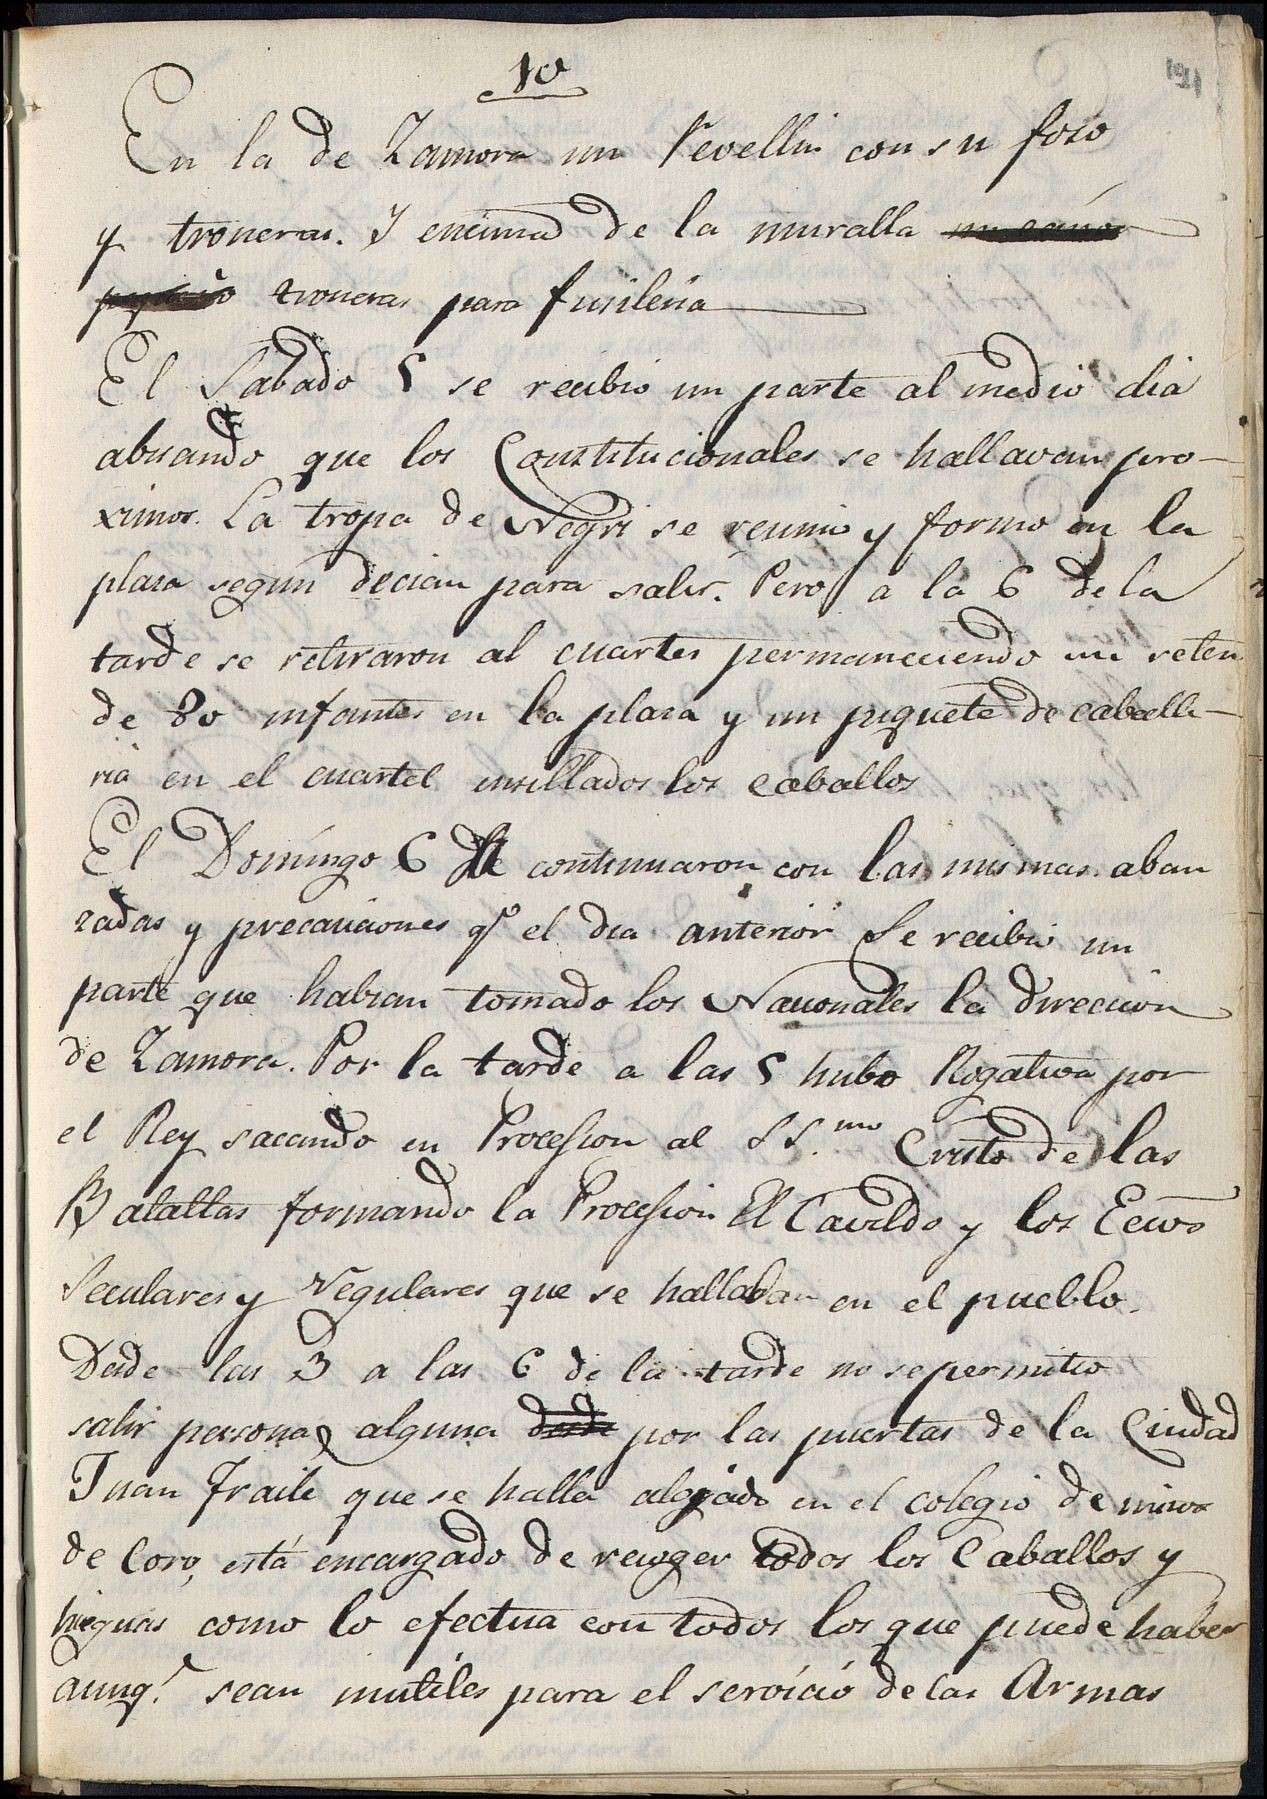 10
En la de Zamora un Revellin con su foso
y troneras. Y encima de la muralla
troneras para fusileria
El Sabado 5 se recibio un parte al medio dia
abisando que los Constitucionales se hallavan pro-
ximos. La tropa de Negri se reunio y formo en la
plaza según decian para salir. Pero a la 6 de la
tarde se retiraron al cuartel permaneciendo un reten
de 80 infantes en la plaza y un piquete de caballe-
ria en el cuartel ensillados los caballos
El Domingo 6 se continuaron con las mismas aban
zadas y precauciones qº el dia anterior Se recibio un
parte que habian tomado los Nacionales la direccion
de Zamora. Por la tarde a las 5 hubo Rogativa por
el Rey sacando en Procesion al SS.mo Cristo de las
Batallas formando la Procesion El Cavildo y los Eccos
Seculares y Regulares que se hallaban en el pueblo.
Desde las 3 a las 6 de la tarde no se permitio
salir persona alguna desde por las puertas de la Ciudad
Juan Fraile que se halla alojado en el colegio de ninos
de Coro, está encargado de recoger todos los Caballos y
hieguas como lo efectua con todos los que puede haber
aunq.e sean inutiles para el servicio de las Armas